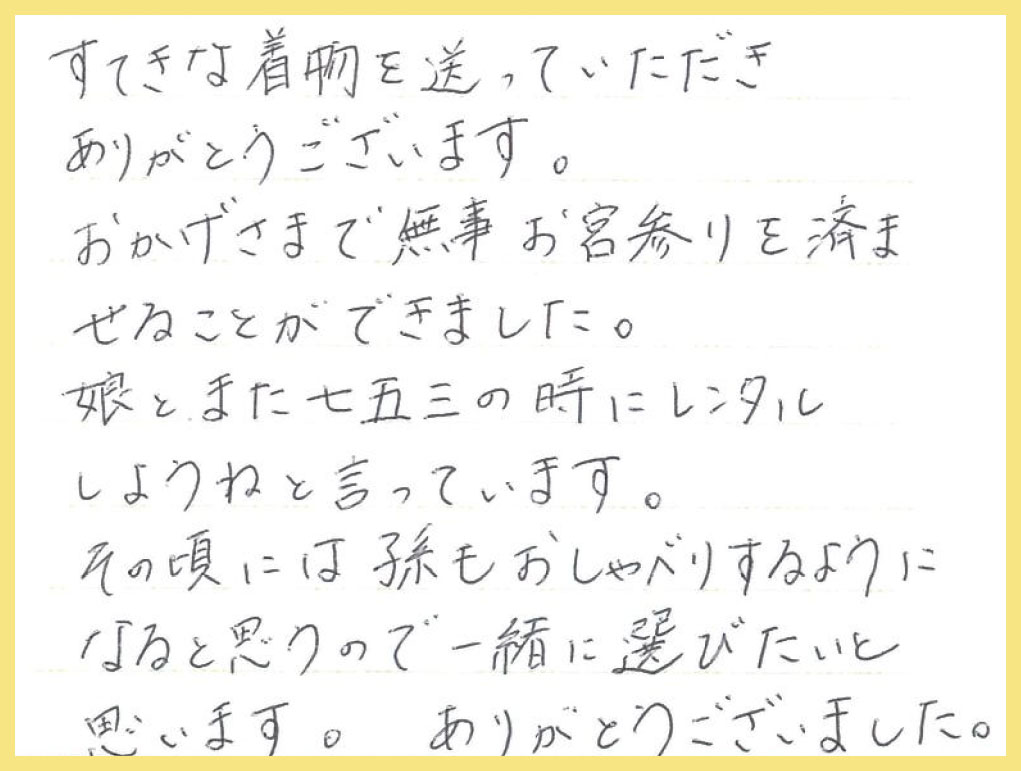 すてきな着物を送っていただき
ありがとうございます。
おかげさまで無事お宮参りを済ま
せることができました。
娘とまた七五三の時にレンタル
しようねと言っています。
その頃には孫もおしゃべりするように
なると思うので一緒に選びたいと
思います。 ありがとうございました。